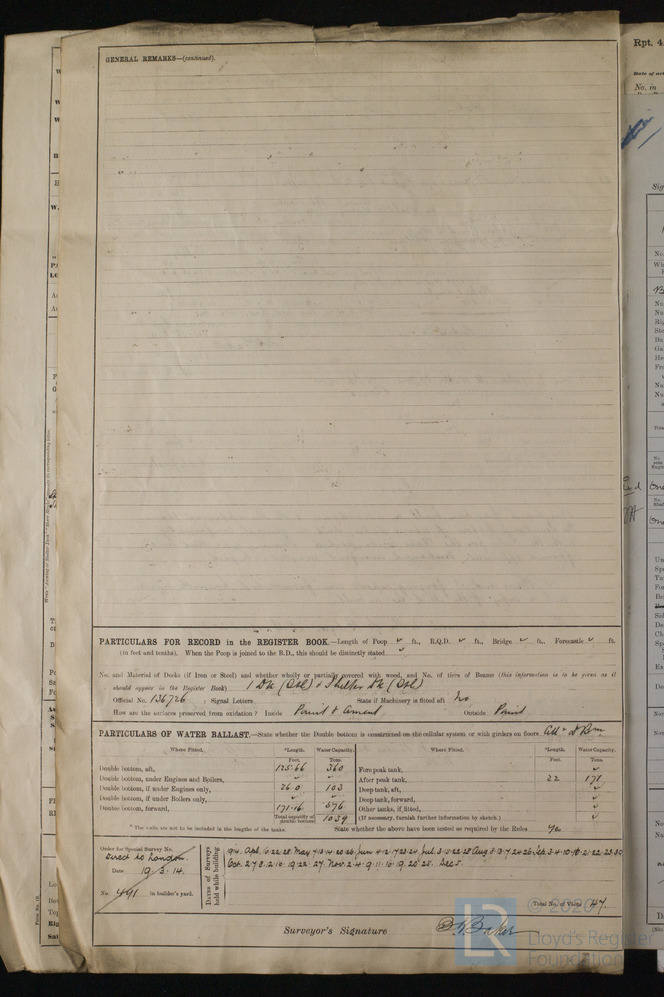 GENERAL REMARKS—(continued).
PARTICULARS FOR RECORD in the REGISTER BOOK.—Length of Poop ft., R.Q.D. ft., Bridge ft., Forecastle ft.
(in feet and tenths). When the Poop is joined to the B.D., this should be distinctly stated
No. and Material of Decks (if Iron or Steel) and whether wholly or partially covered with wood, and No. of tiers of Beams (this information is to be given as it
should appear in the Register Book) 1 Dk (Stl) & Shelter Dk (Stl)
Official No. 136726 ; Signal Letters State if Machinery is fitted aft No
How are the surfaces preserved from oxidation? Inside Paint & Cement Outside Paint
PARTICULARS OF WATER BALLAST.—State whether the Double bottom is constructed on the cellular system or with girders on floors
Where Fitted. *Length. Water Capacity. Where Fitted. *Length. Water Capacity.
Feet. Tons. Feet. Tons.
Double bottom, aft, 125.66 360 Fore peak tank,
Double bottom, under Engines and Boilers, After peak tank, 22 171
Double bottom, if under Engines only, 26.0 103 Deep tank, aft,
Double bottom, if under Boilers only, Deep tank, forward,
Double bottom, forward, 171.16 576 Other tanks, if fitted,
Total capacity of double bottom 1039 (If necessary, furnish further information by sketch.)
* The wells are not to be included in the lengths of the tanks. State whether the above have been tested as required by the Rules Yes
Order for Special Survey No.
Direct to London.
Date 19/3/14.
No. 491 in builder's yard.
Dates of Surveys held while building
Total No. of Visits 47.
Surveyor's Signature
© 2020
Lloyd's Register
Foundation
Rpt. 4
No. in